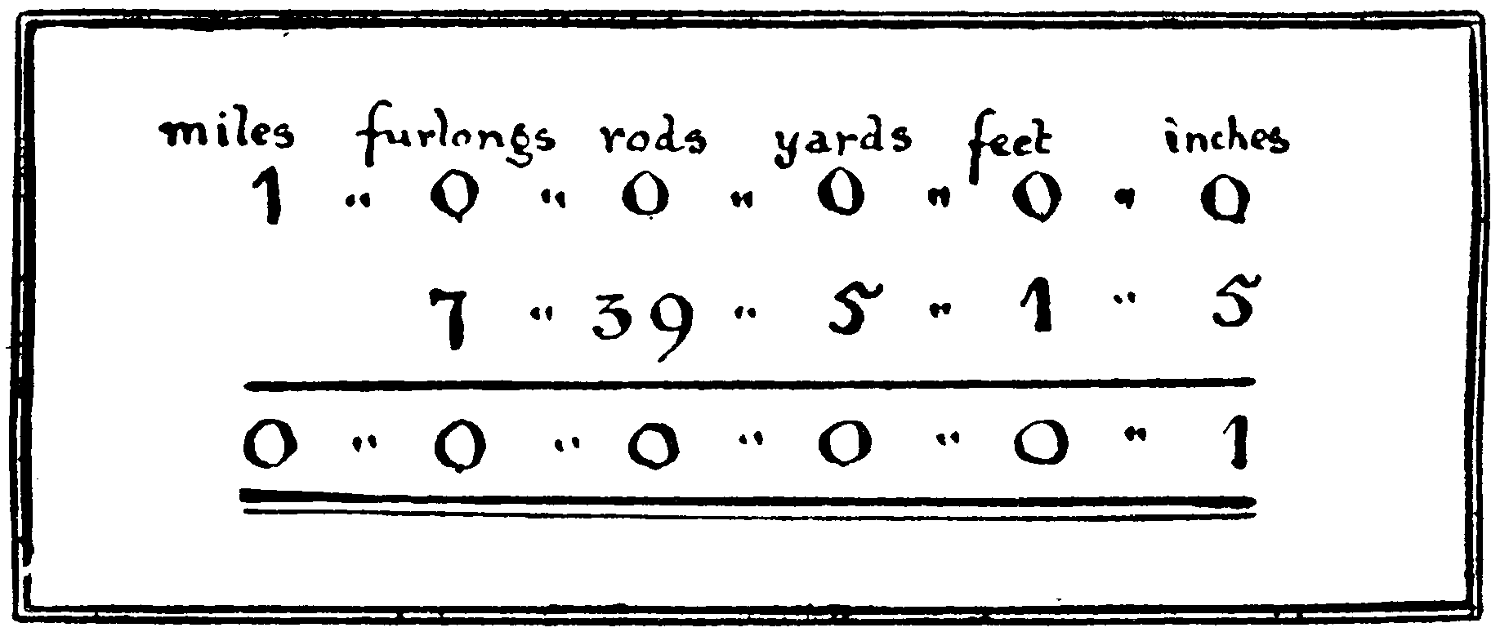 miles furlongs rods yards feet inches
1 " 0 " 0 " 0 " 0 " 0
7 " 39 " 5 " 1 " 5
0 " 0 " 0 " 0 " 0 " 1